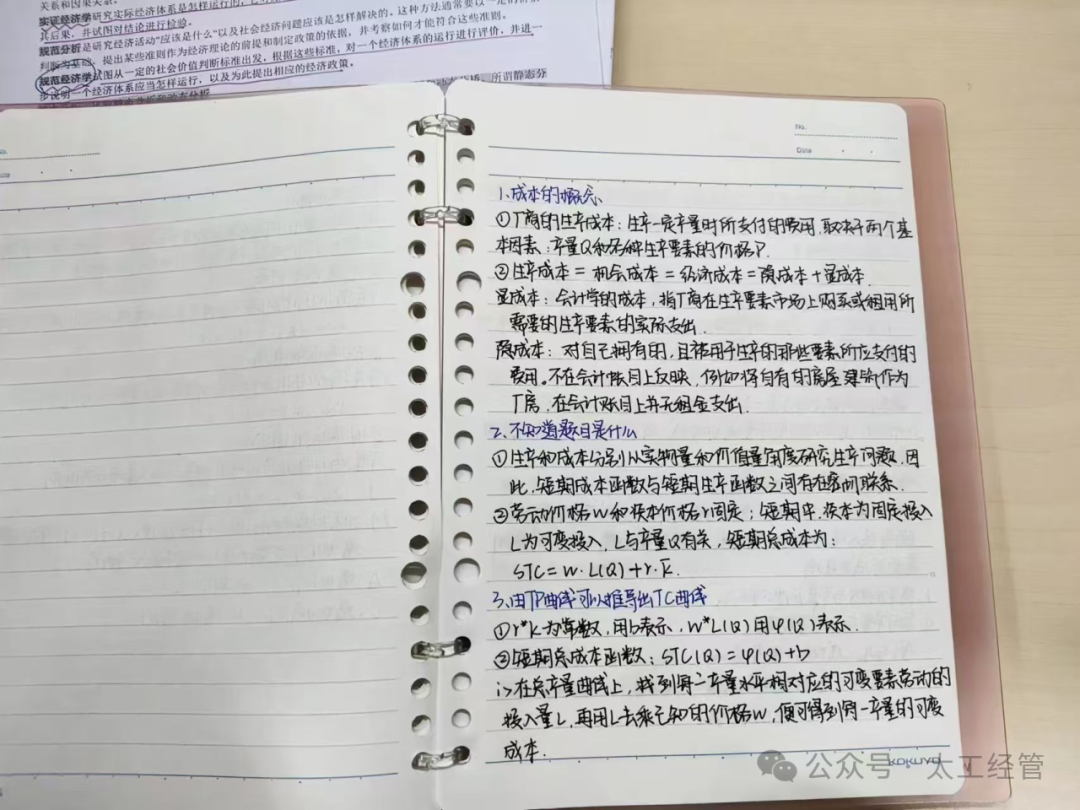 关系和因果关系。
实证经济学研究实际经济体系是怎样运行的,
其后果,并试图对结论进行检验。
规范分析是研究经济活动“应该是什么”以及社会经济问题应该是怎样解决的。这种方法通常要以一定的价值
判断为基础,提出某些准则作为经济理论的前提和制定政策的依据,并考察如何才能符合这些准则。
规范经济学试图从一定的社会价值判断标准出发,根据这些标准,对一个经济体系的运行进行评价,并进一
步说明一个经济体系应当怎样运行,以及为此提出相应的经济政策。
所谓静态分
No.
Date
1、成本的概念、
①厂商的生产成本:生产一定产量时所支付的费用,取决于两个基
本因素:产量Q和各种生产要素的价格P.
②生产成本=机会成本=经济成本=隐成本+显成本.
显成本:会计学的成本,指厂商在生产要素市场上购买或租用所
需要的生产要素的实际支出.
隐成本:对自己拥有的,且被用于生产的那些要素所应支付的
费用。不在会计账目上反映,例如将自有的房屋建筑作为
厂房,在会计账目上并无租金支出.
2、不知道题目是什么
①生产和成本分别从实物量和价值量角度研究生产问题,因
此,短期成本函数与短期生产函数之间存在密切联系.
②劳动价格W和资本价格r固定;短期中,资本为固定投入
L为可变投入,L与产量Q有关,短期总成本为:
STC=w·L(Q)+r·k̄.
3、由TP曲线可以推导出TC曲线
①r*k为常数,用b表示,w*L(Q)用φ(Q)表示.
②短期总成本函数:STC(Q)=φ(Q)+b
i>在总产量曲线上,找到每一产量水平相对应的可变要素劳动的
投入量L,再用L去乘已知的价格w,便可得到每一产量的可变
成本.
KOKUYO
公众号·太工经管